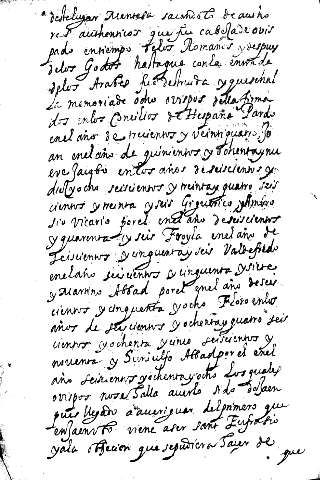 deste lugar Mentesa sacandolo de autho
res authenticos que fue cabeza de ovis
pado en tiempo de los Romanos y despues
de los Godos hasta que con la entrada
de los Arabes fue destruida y que señal
la memoria de ocho ovispos della firma
dos en los Concilios de Hespaña Pardo
en el año de trecientos y veintiquatro Jo
an en el año de quinientos y ochenta y nu
eve Jacobo en los años de seiscientos y
diez y ocho seiscientos y treinta y quatro seis
cientos y treinta y seis Giverico y
Vicario por el en el año de seiscientos
y quarenta y seis Froyla en el año de
seiscientos y cinquenta y seis Valdefredo
en el año seiscientos y cinquenta y siete
y Martino Abbad por el en el año de seis
cientos y cinquenta y ocho Floro en los
años de seiscientos y ochenta y quatro seis
cientos y ochenta y cinco seiscientos y
noventa y Siniulfo Abbad por el en el
año seiscientos y ochenta y ocho los quales
ovispos no se halla averlo sido de Jaen
pues llegado a averiguar del primero que
en Jaen viene a ser sant Eufrasio
y a la objecion que se pudiera hazer de
que